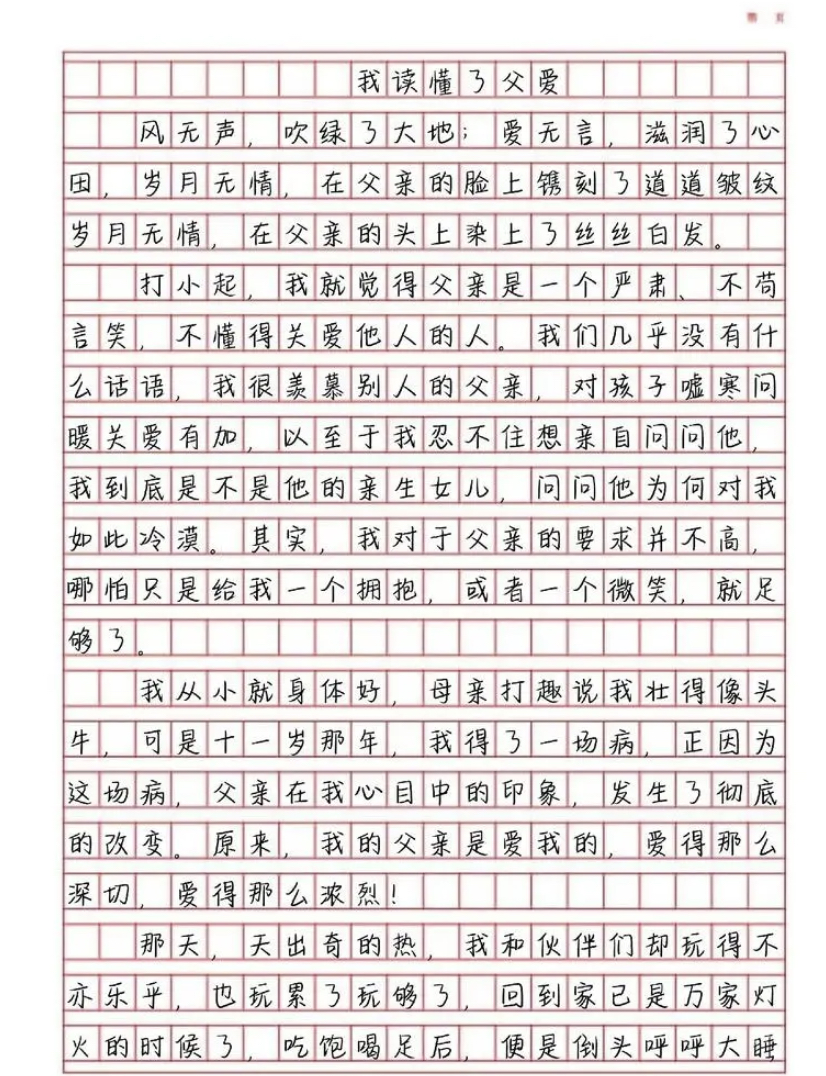 我读懂了父爱
风无声，吹绿了大地；爱无言，滋润了心
田，岁月无情，在父亲的脸上镌刻了道道皱纹
岁月无情，在父亲的头上染上了丝丝白发。
打小起，我就觉得父亲是一个严肃、不苟
言笑，不懂得关爱他人的人。我们几乎没有什
么话语，我很羡慕别人的父亲，对孩子嘘寒问
暖关爱有加，以至于我忍不住想亲自问问他，
我到底是不是他的亲生女儿，问问他为何对我
如此冷漠。其实，我对于父亲的要求并不高，
哪怕只是给我一个拥抱，或者一个微笑，就足
够了。
我从小就身体好，母亲打趣说我壮得像头
牛，可是十一岁那年，我得了一场病，正因为
这场病，父亲在我心目中的印象，发生了彻底
的改变。原来，我的父亲是爱我的，爱得那么
深切，爱得那么浓烈！
那天，天出奇的热，我和伙伴们却玩得不
亦乐乎，也玩累了玩够了，回到家已是万家灯
火的时候了，吃饱喝足后，便是倒头呼呼大睡